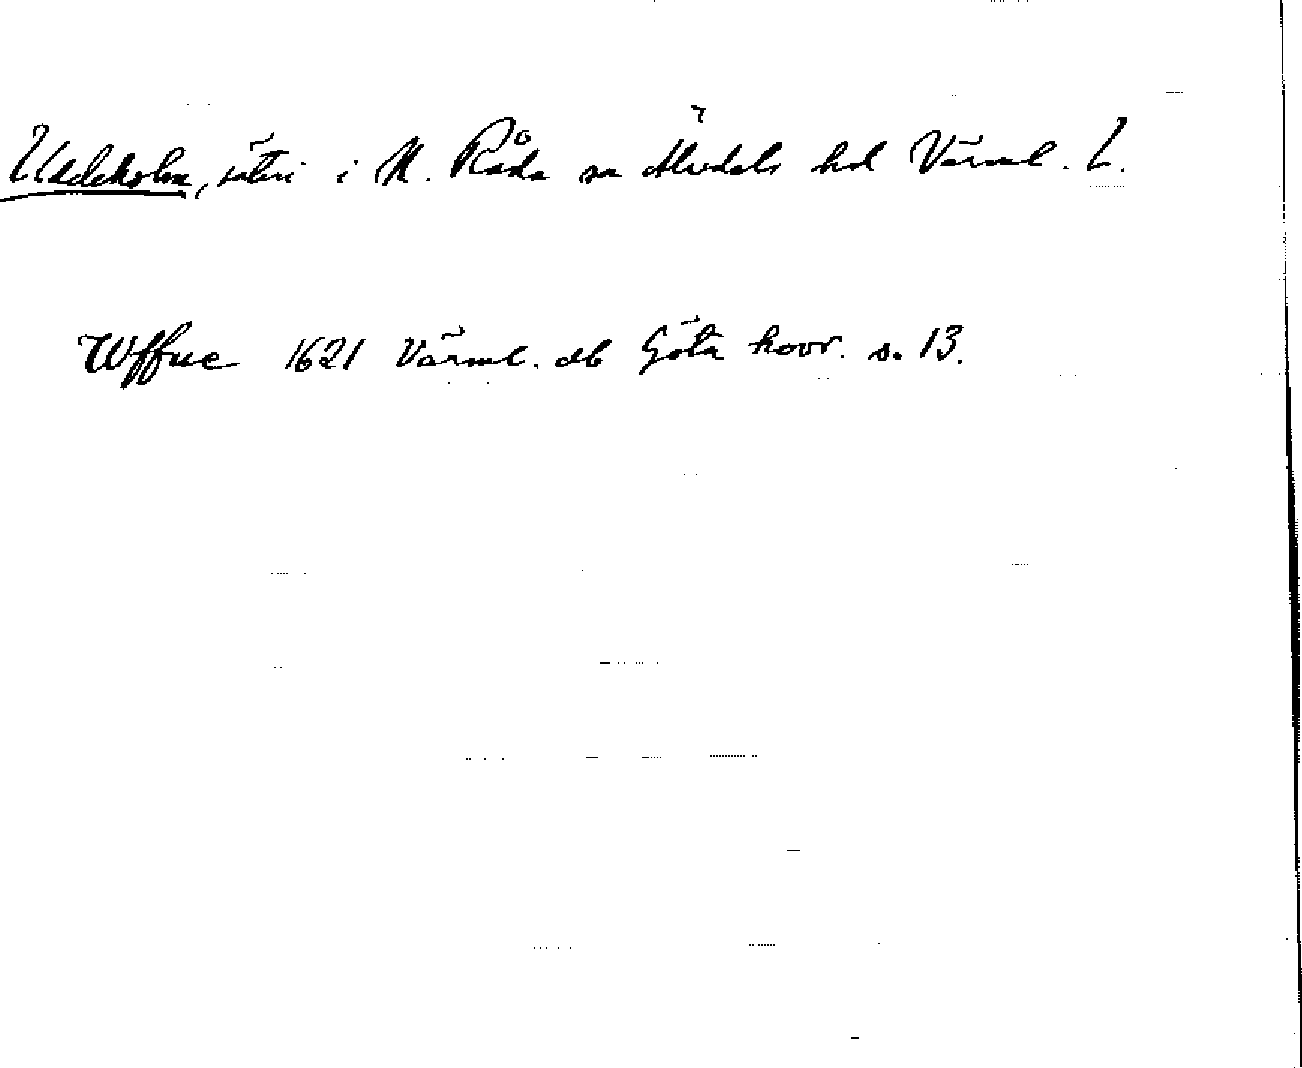 Uddeholm, säteri i N. Råda sn Älvdals hd Värml. L.
Wffue 1621 Värml. db Göta hovr. s. 13.